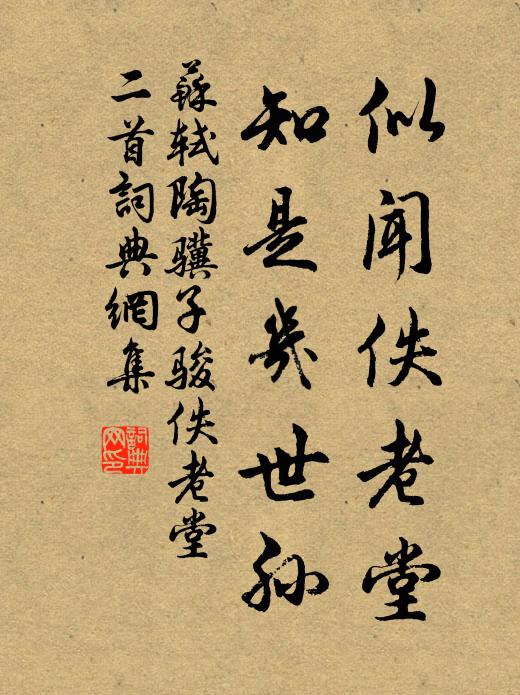 似闻佚老堂
知是几世孙
蘇轼陶骥子骏佚老堂
二首詞典網集
詞典网印